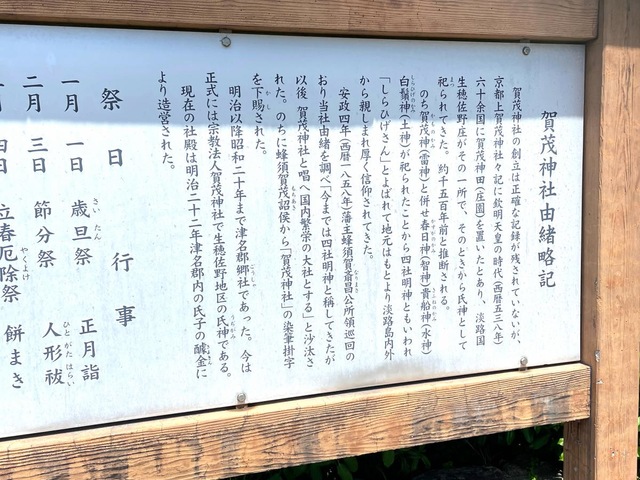 賀茂神社由緒略記
賀茂神社の創立は正確な記録が残されていないが、
京都上賀茂神社々記に欽明天皇の時代(西暦五三八年)
六十余国に賀茂神田(庄園)を置いたとあり、淡路国
生穂佐野庄がその一所で、そのときから氏神として
祀られてきた。約千五百年前と推断される。
のち賀茂神(雷神)と併せ春日神(智神)貴船神(水神)
白鬚神(土神)が祀られたことから四社明神ともいわれ
「しらひげさん」とよばれて地元はもとより淡路島内外
から親しまれ厚く信仰されてきた。
安政四年(西暦一八五八年)藩主蜂須賀斎昌公所領巡回の
おり当社由緒を調べ「今までは四社明神と称してきたが
以後、賀茂神社と唱へ国内繁栄の大社とする」と沙汰さ
れた。のちに蜂須賀茂韶侯から「賀茂神社」の染筆掛字
を下賜された。
明治以降昭和二十年まで津名郡郷社であった。今は
正式には宗教法人賀茂神社で生穂佐野地区の氏神である。
現在の社殿は明治二十二年津名郡内の氏子の醵金に
より造営された。
祭日 行事
一月 一日 歳旦祭 正月詣
人形祓
二月 三日 節分祭
四日 立春厄除祭 餅まき